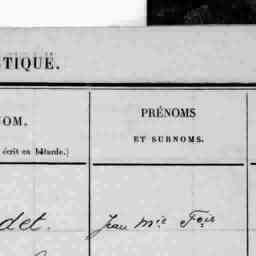 TIQUE.
OM.
écrit en bâtarde.)
PRÉNOMS
ET SURNOMS.
det.
Jean Mie Fois